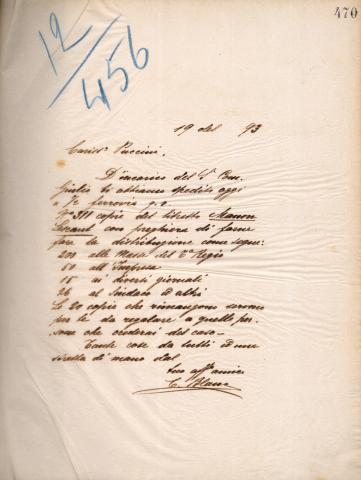 470
12/456
19 del 93
Cariss. Puccini.
D'incarico del S. Com.
Giulio ti abbiamo spedito oggi
a ½ ferrovia g. v.
N° 311 copie del libretto Manon
Lescaut con preghiera di farne
fare la distribuzione come segue:
200 alla Massa del T° Regio
50 all' Impresa
15 ai diversi giornali
26 al Sindaco ed altri
Le 20 copie che rimangono servono
per te da regalare a quelle per-
sone che crederai del caso.
Tante cose da tutti ed una
stretta di mano dal
tuo aff° amico
C. Blanc